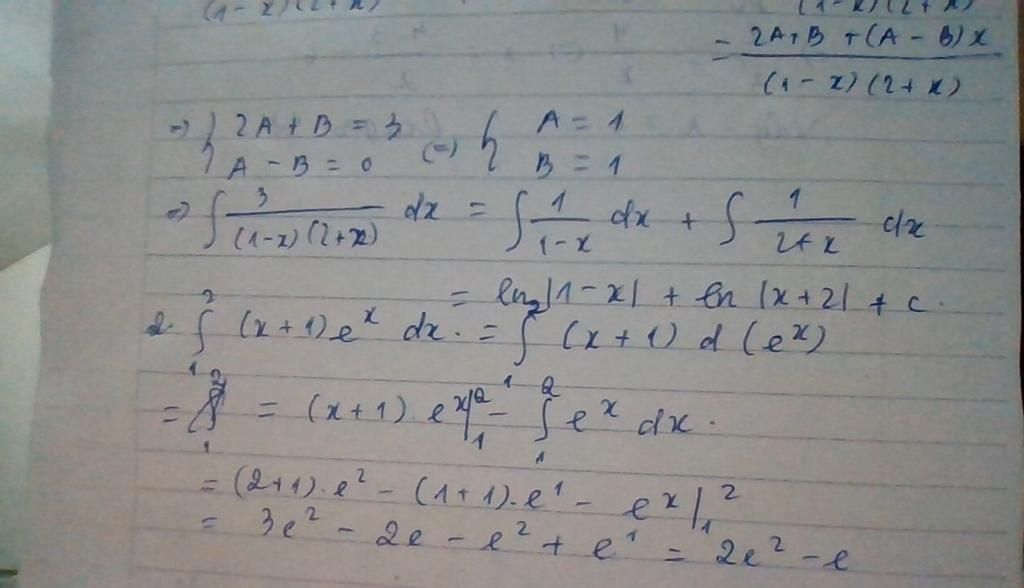 (1-x)(2+x) (1-x)(2+x)
= 2A+B+(A-B)x / (1-x)(2+x)
=> { 2A+B=3 (=) { A=1
A-B=0 B=1
=> ∫ 3/((1-x)(2+x)) dx = ∫ 1/(1-x) dx + ∫ 1/(2+x) dx
= ln|1-x| + ln|x+2| + c.
2. ∫₁² (x+1)eˣ dx. = ∫₁² (x+1) d(eˣ)
= = (x+1) eˣ|₁² - ∫₁² eˣ dx.
= (2+1).e² - (1+1).e¹ - eˣ|₁²
= 3e² - 2e - e² + e¹ = 2e² - e